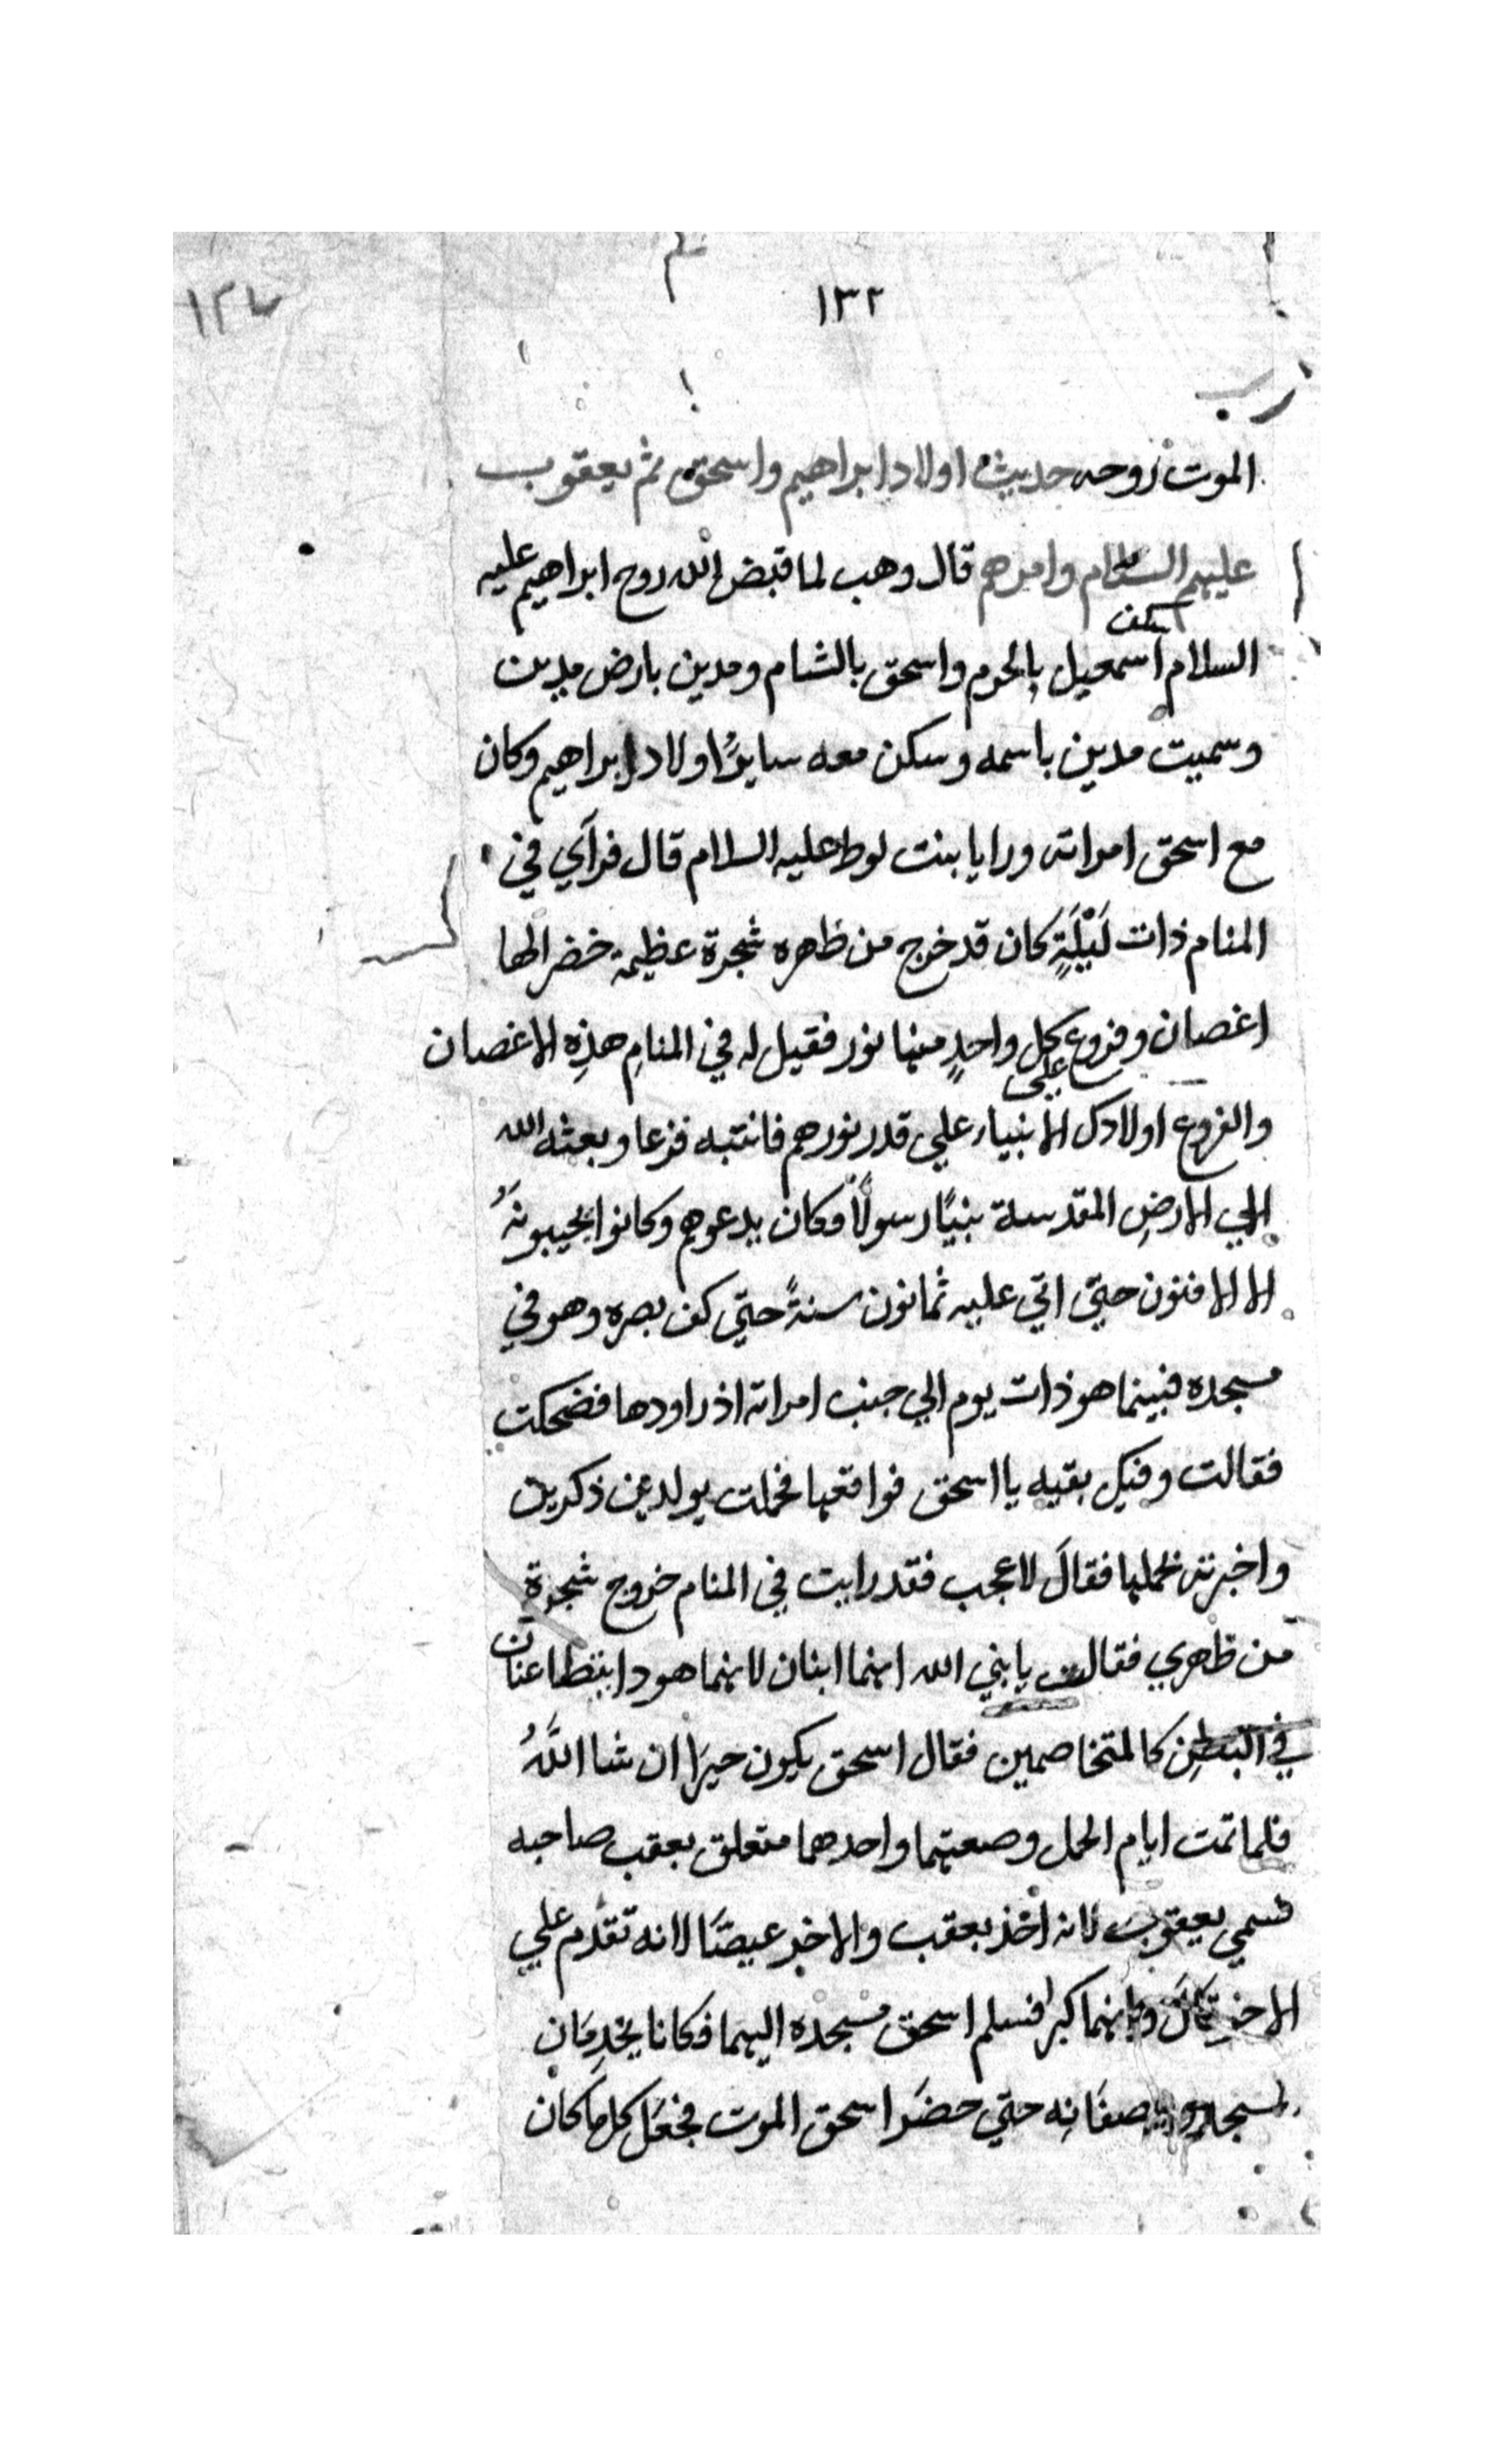 ١٣٢
١٢٧
الموت روحه حديث اولاد ابراهيم واسحق ثم يعقوب
عليهم السلام وامرهم قال وهب لما قبض الله روح ابراهيم عليه
السلام اسكن اسمعيل بالحرم واسحق بالشام ومدين بارض مدين
وسميت مدين باسمه وسكن معه سايرُ اولاد ابراهيم وكان
مع اسحق امراته ورايا بنت لوط عليه السلام قال فرآي في
المنام ذات لَيْلَةٍ كان قد خرج من ظهره شجرة عظيمة خضرا لها
اغصان وفروع على كل واحدٍ منها نور فقيل له في المنامِ هذِه الاغصان
والفروع اولادك الانبياء علي قدر نورهم فانتبه فزعا وبعثه الله
الي الارضِ المقدسة نبيًا رسولًا فكان يدعوهم وكانوا يجيبونهُ
الا الاقلون حتي اتي عليه ثمانون سنةً حتي كف بصره وهو في
مسجده فبينما هو ذات يوم الي جنب امراته اذ راودها فضحكت
فقالت وفيك بقيه يا اسحق فواقعها فحملت بولدين ذكرين
واخبرته بحملها فقالَ لا عجب فقد رايت في المنام خروج شجرة
من ظهري فقالت يا نبي الله انهما ابنان لانهما هودا ينتطاعنان
في البطنِ كالمتخاصمين فقال اسحق يكون خيرًا ان شا اللَّهُ
فلما تمت ايام الحمل وضعتهما واحدهما متعلق بعقب صاحبه
فسمي يعقوب لانه اخذ بعقب والاخر عيصًا لانه تقدم علي
الاخر قالَ وانهما كبرا فسلم اسحق مسجده اليهما فكانا يخدِمَانِ
لمسجده حتي حضَر اسحق الموت فجعَل كل ما كان